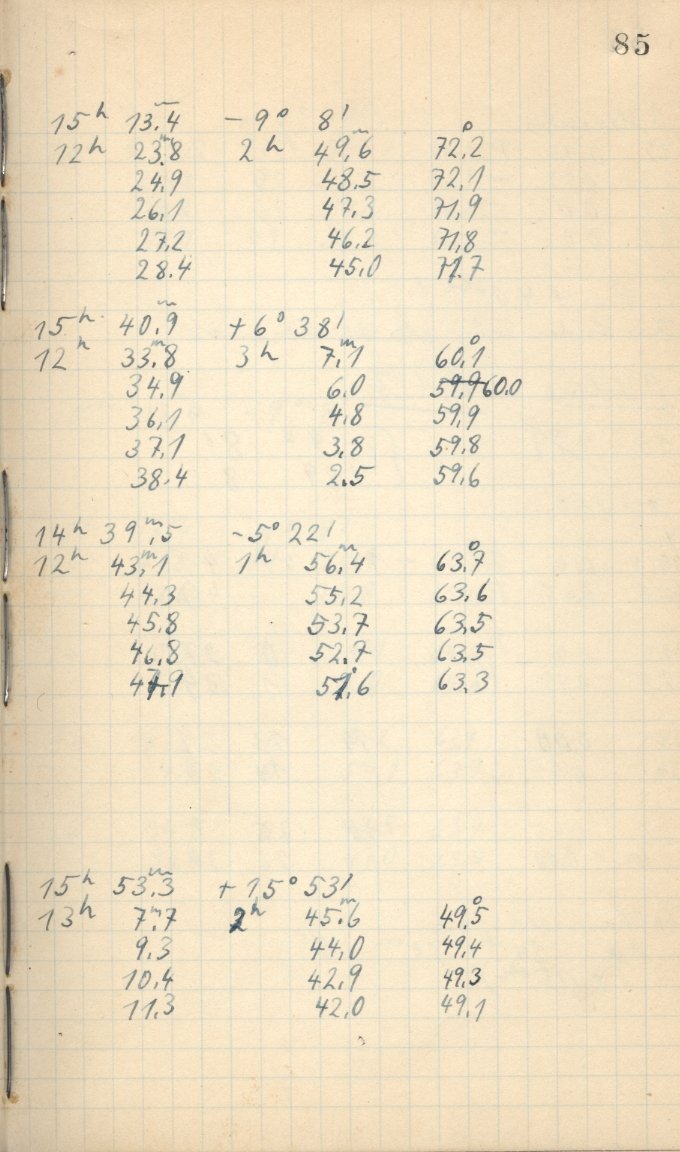 85
15ʰ 13ᵐ.4 −9° 8′
12ʰ 23ᵐ.8 2ʰ 49ᵐ.6 72°.2
24.9 48.5 72.1
26.1 47.3 71.9
27.2 46.2 71.8
28.4 45.0 71.7
15ʰ 40ᵐ.9 +6° 38′
12ʰ 33ᵐ.8 3ʰ 7ᵐ.1 60°.1
34.9 6.0 59.9 60.0
36.1 4.8 59.9
37.1 3.8 59.8
38.4 2.5 59.6
14ʰ 39ᵐ.5 −5° 22′
12ʰ 43ᵐ.1 1ʰ 56ᵐ.4 63°.7
44.3 55.2 63.6
45.8 53.7 63.5
46.8 52.7 63.5
47.9 51.6 63.3
15ʰ 53ᵐ.3 +15° 53′
13ʰ 7ᵐ.7 2ʰ 45ᵐ.6 49°.5
9.3 44.0 49.4
10.4 42.9 49.3
11.3 42.0 49.1